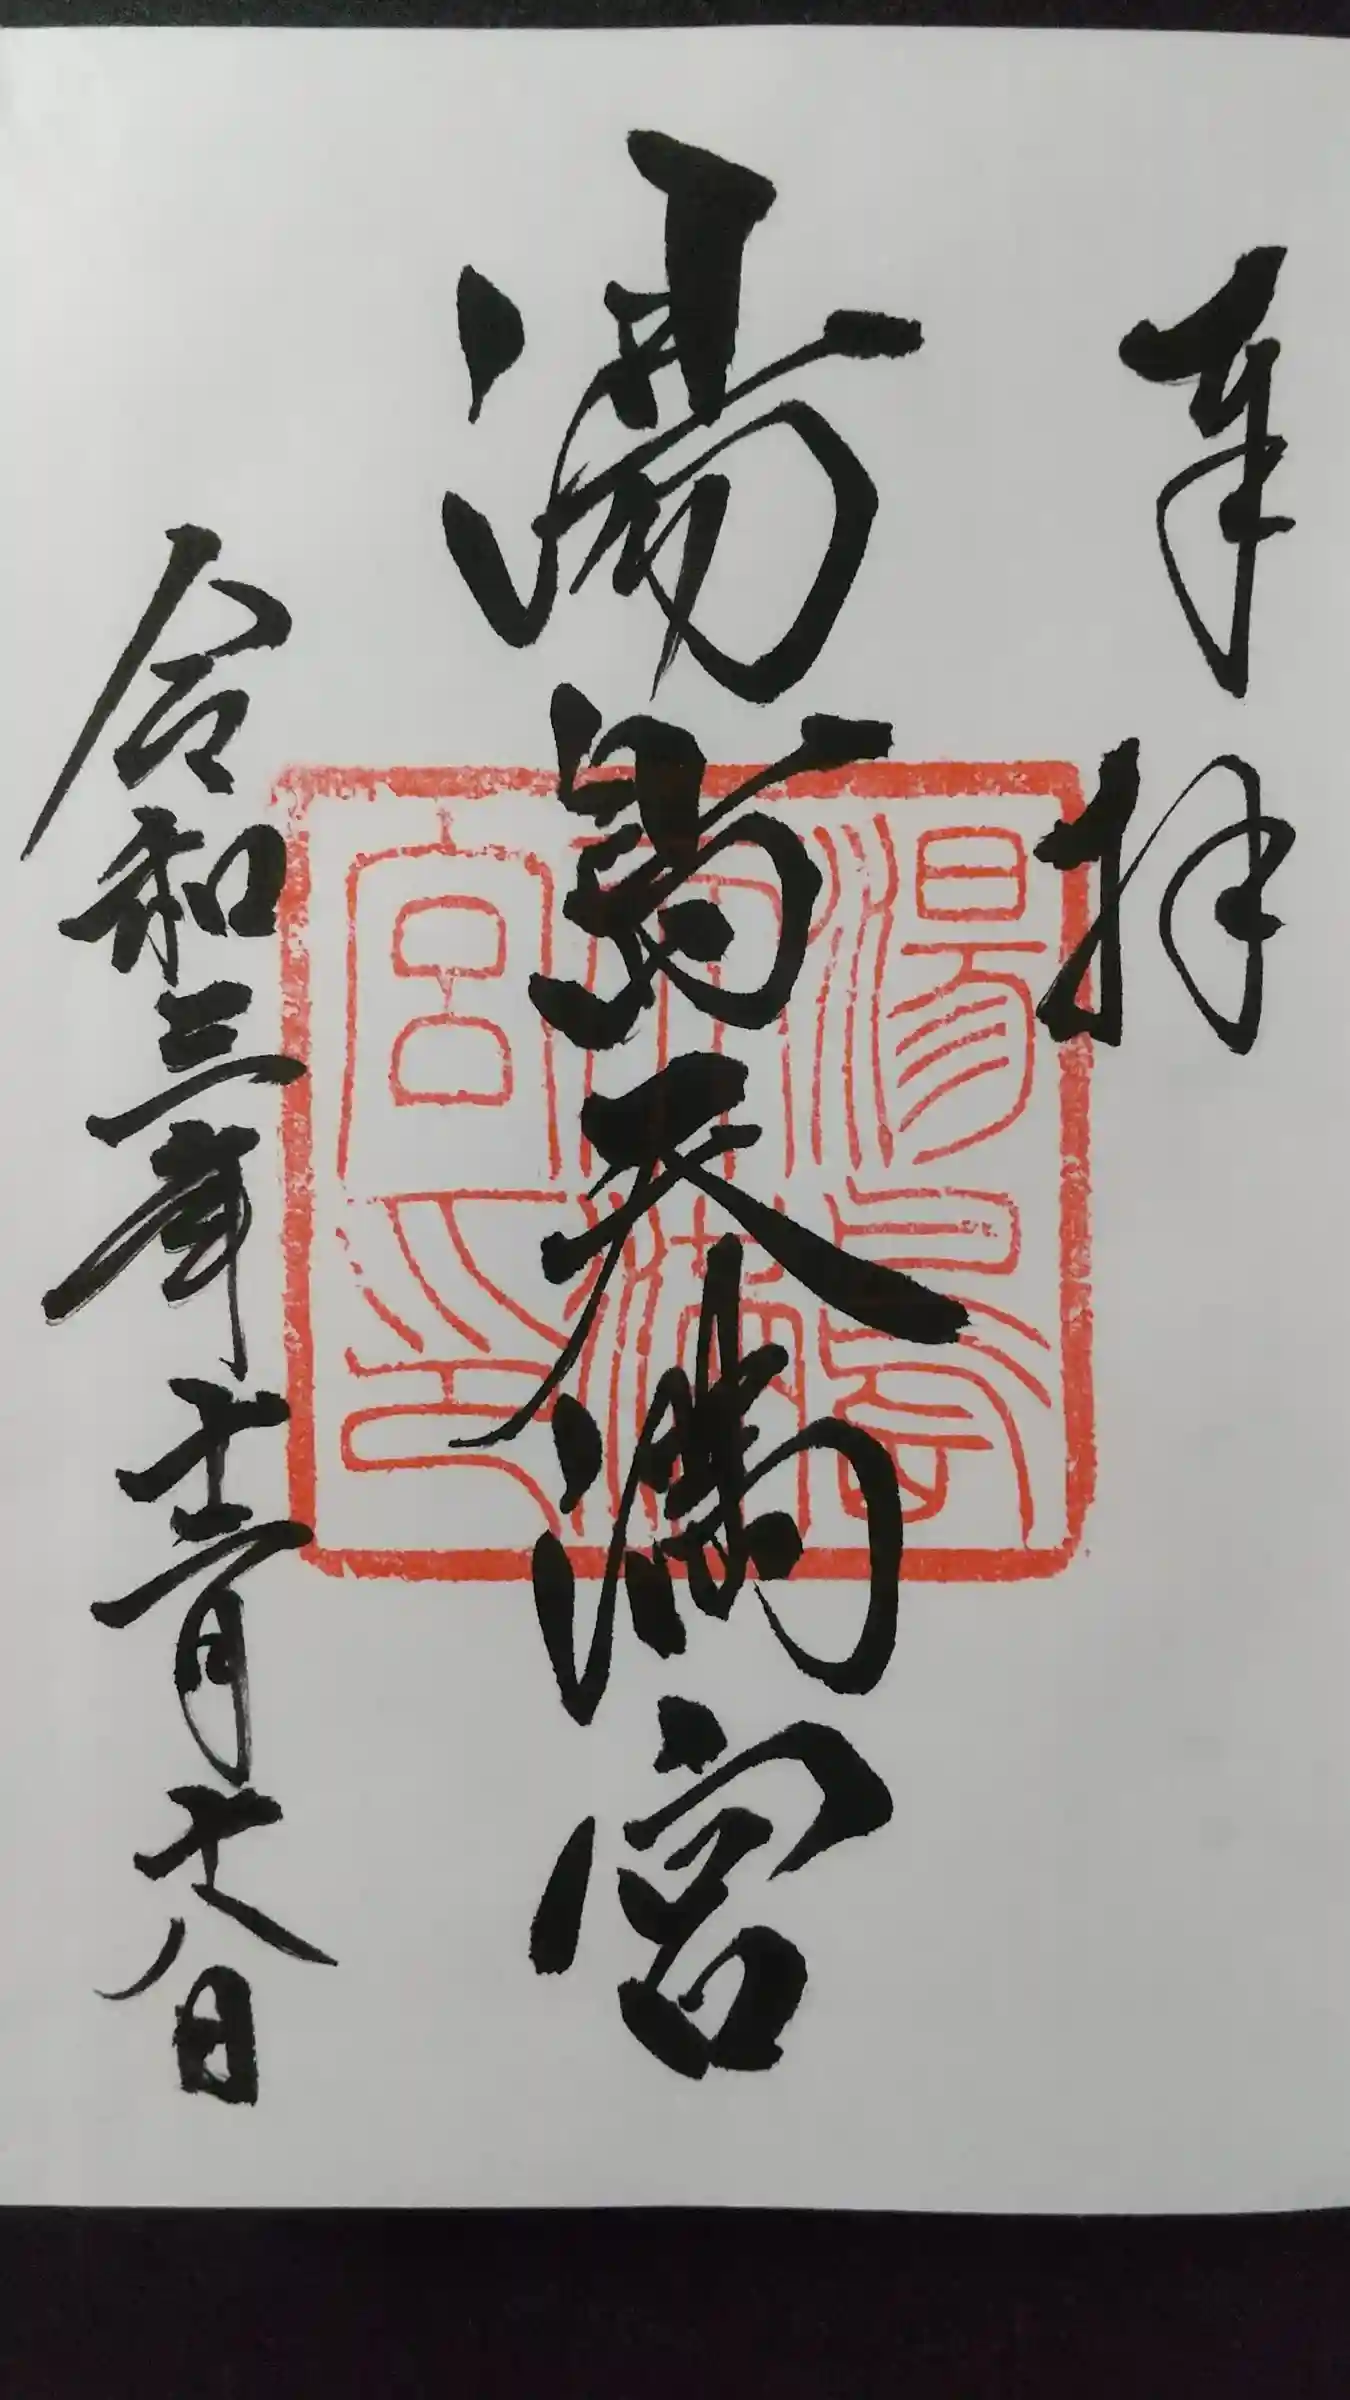 奉拝
湯島天満宮
令和三年十二月十八日
湯島
天満
宮印